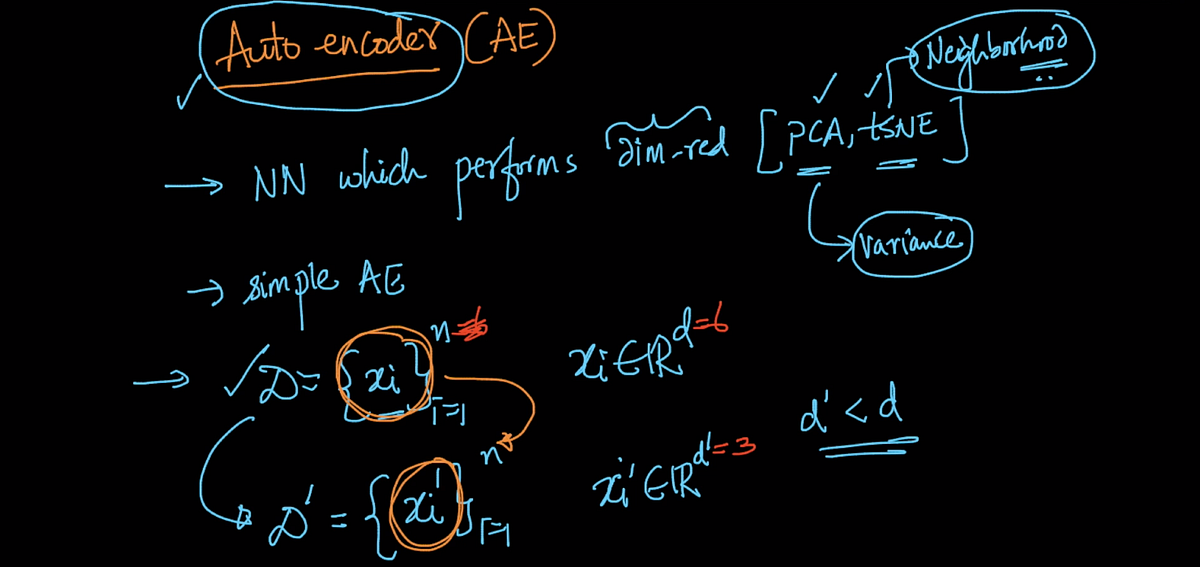 Auto encoder (AE)
Neighborhood
→ NN which performs dim-red [PCA, tSNE]
Variance
→ simple AE
→ ✓ D = {xi}ⁿᵢ₌₁ xi ∈ ℝ^d=6
d' < d
D' = {xi'}ⁿᵢ₌₁ xi' ∈ ℝ^d'=3